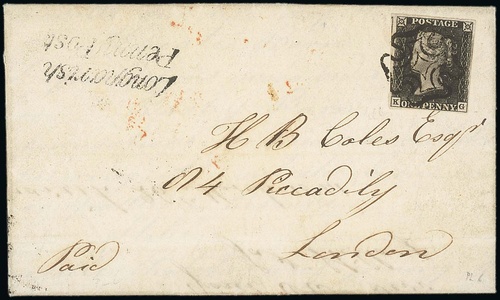 Longparish
Penny Post
POSTAGE
K G
ONE PENNY
H B Coles Esqr
84 Piccadily
London
Paid